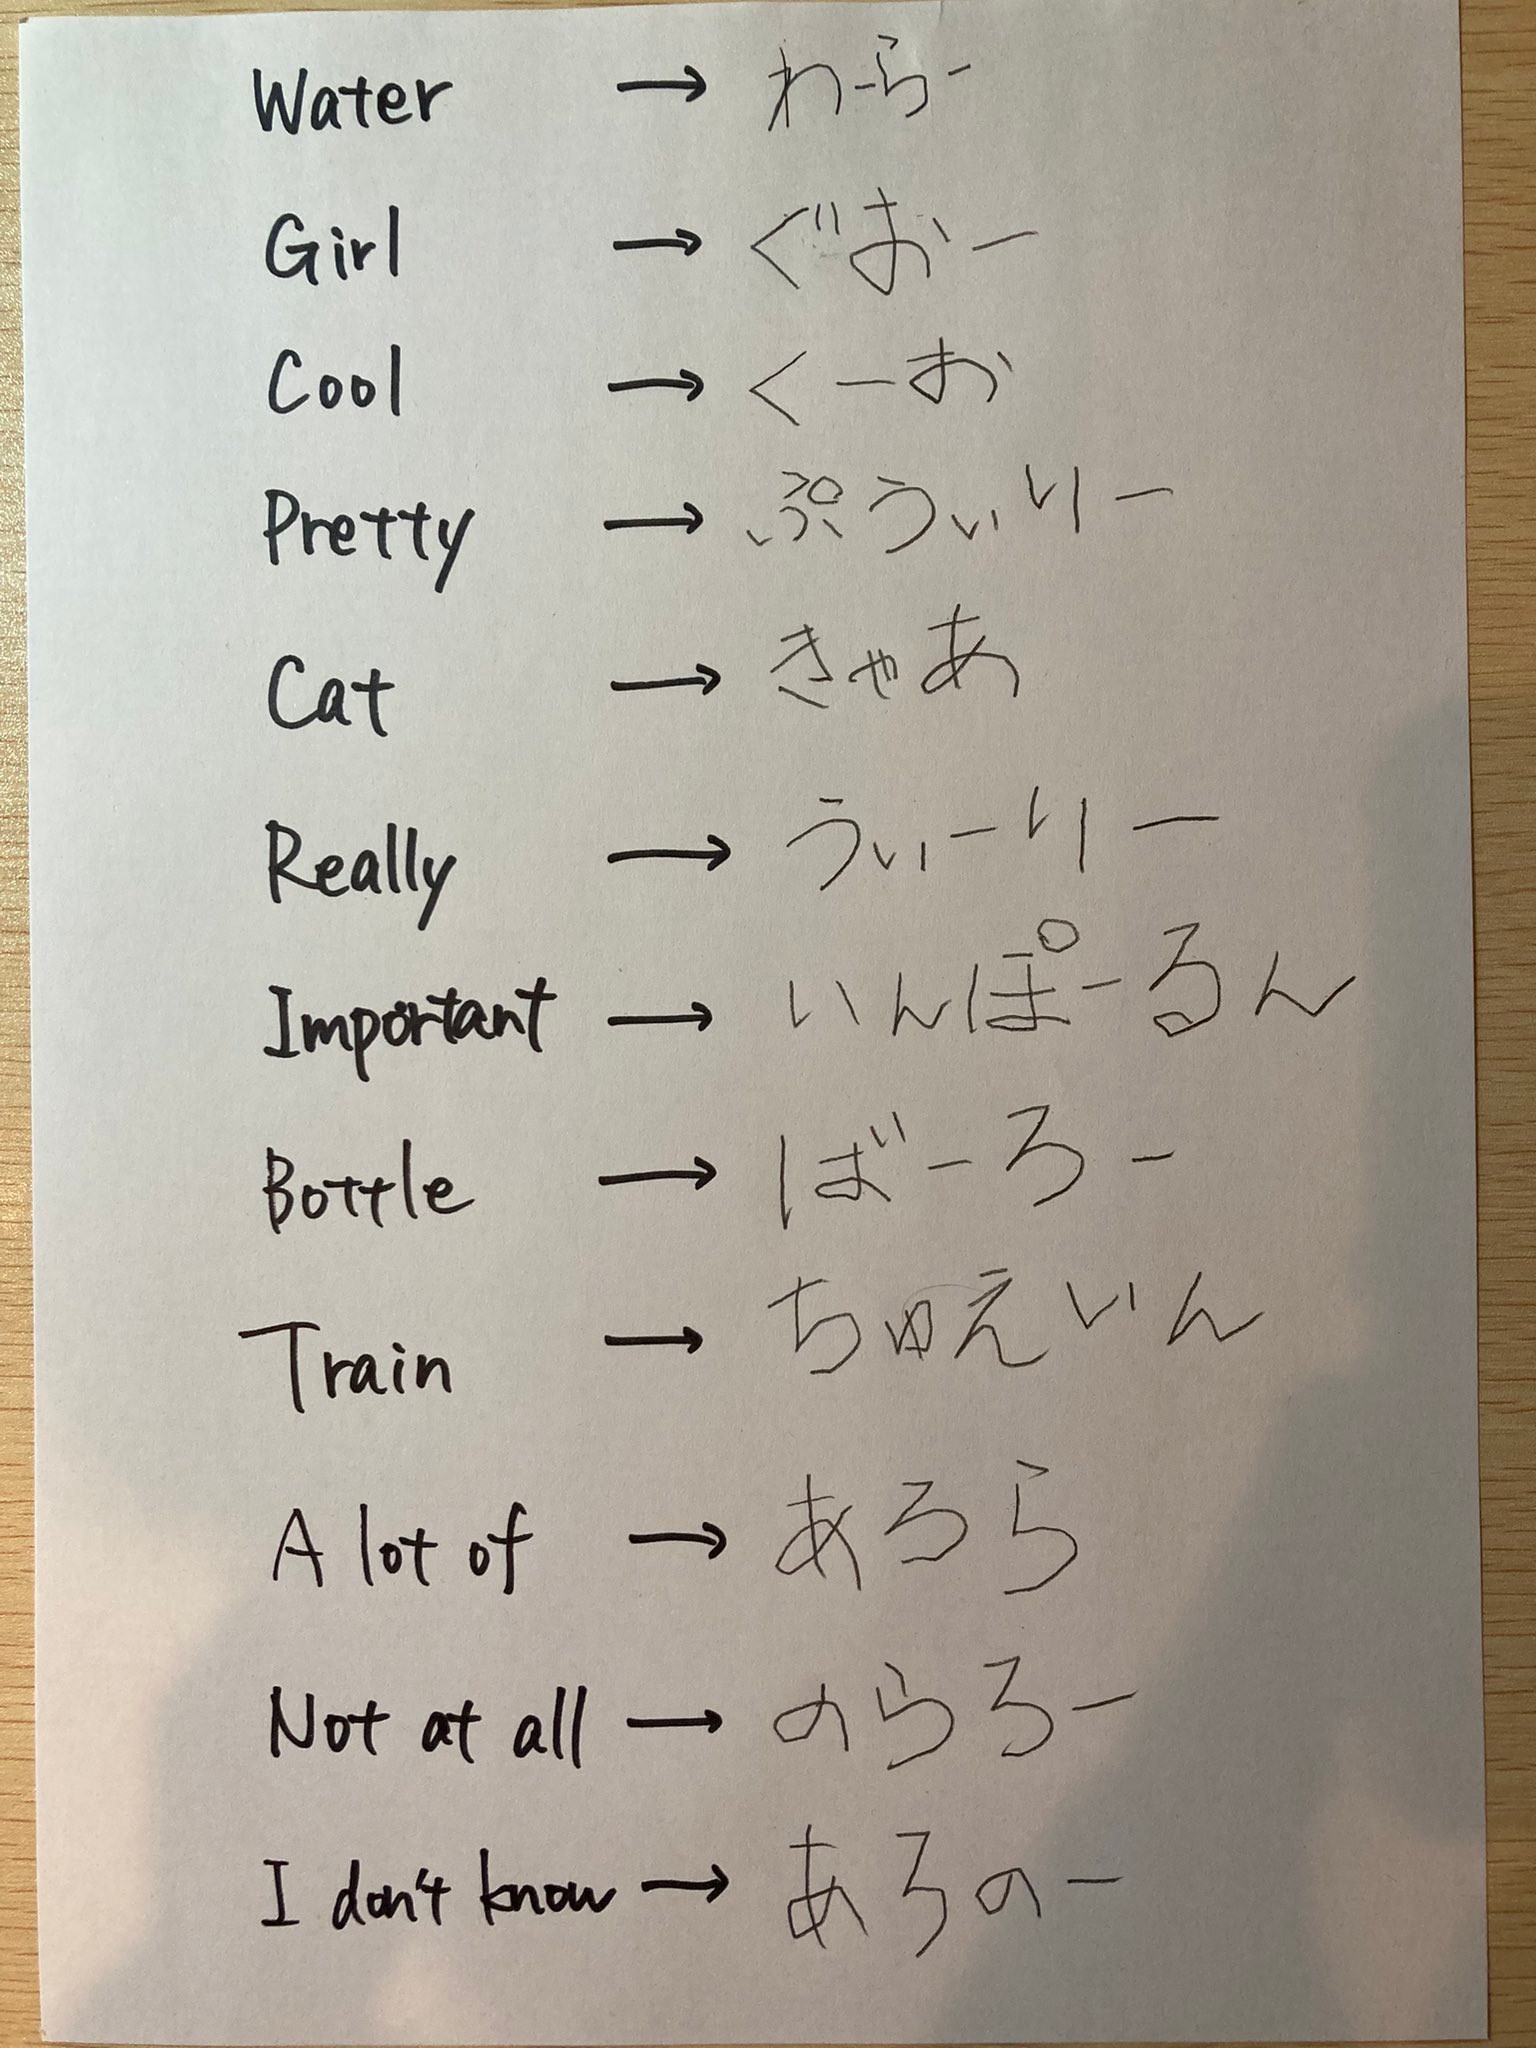 Water → わーらー
Girl → ぐおー
Cool → くーお
Pretty → ぷうぃりー
Cat → きゃあ
Really → うぃーりー
Important → いんぽーるん
Bottle → ばーろー
Train → ちゅえいん
A lot of → あろら
Not at all → のらろー
I don't know → あろのー